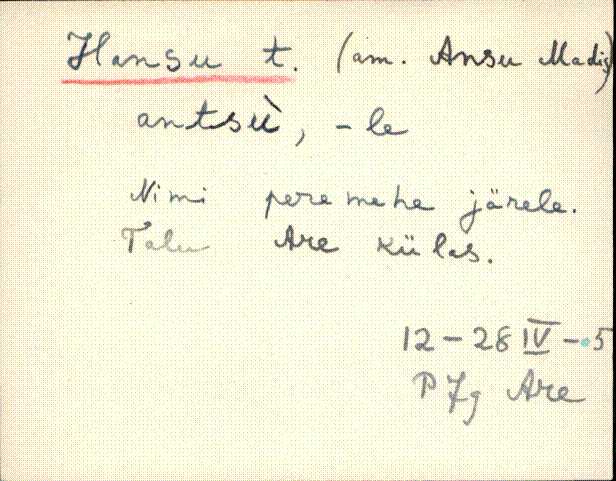 Hansu t. (am. Ansu Madis)
antsù, -le
Nimi peremehe järele.
Talu Are külas.
12-28 IV -.5
PJg Are